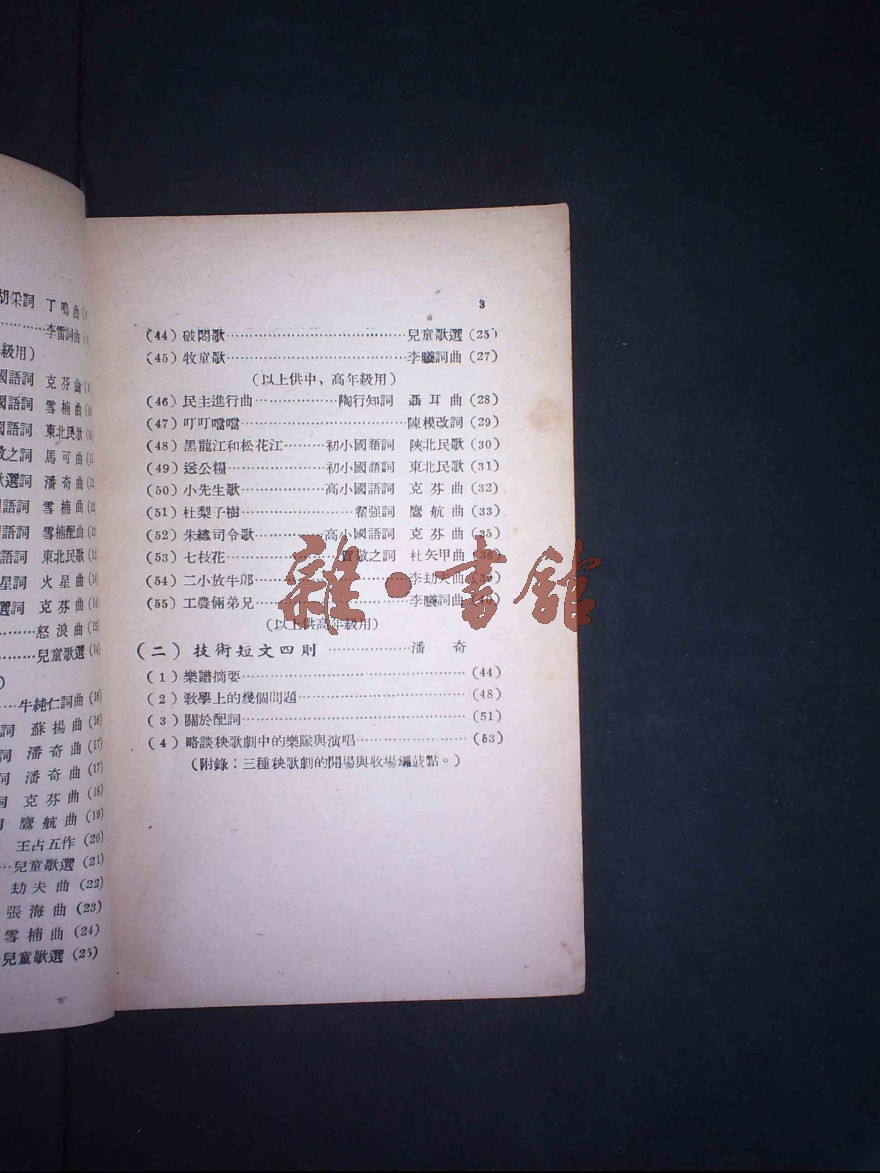 胡采詞 丁鳴曲
李雷詞曲
級用）
國語詞 克芬曲
國語詞 雪楠曲
國語詞 東北民歌
敬之詞 馬可曲
歌選詞 潘奇曲
語詞 雪楠曲
語詞 雪楠配曲
語詞 東北民歌
星詞 火星曲
選詞 克芬曲
怒浪曲(15)
兒童歌選
）
牛純仁詞曲(16)
詞 蘇揚曲(16)
詞 潘奇曲(17)
詞 潘奇曲(17)
詞 克芬曲(18)
鷹航曲(19)
王占五作(20)
兒童歌選(21)
劫夫曲(22)
張海曲(23)
雪楠曲(24)
兒童歌選(25)
3
(44)破悶歌……兒童歌選(25)
(45)牧童歌……李曦詞曲(27)
（以上供中、高年級用）
(46)民主進行曲……陶行知詞 聶耳曲(28)
(47)叮叮噹噹……陳模改詞(29)
(48)黑龍江和松花江……初小國語詞 陝北民歌(30)
(49)送公糧……初小國語詞 東北民歌(31)
(50)小先生歌……高小國語詞 克芬曲(32)
(51)杜梨子樹……翟强詞 鷹航曲(33)
(52)朱總司令歌……高小國語詞 克芬曲(35)
(53)七枝花……賀敬之詞 杜矢甲曲(36)
(54)二小放牛郎……李劫夫曲
(55)工農倆弟兄……李曦詞曲
（以上供高年級用）
(二)技術短文四則……潘奇
(1)樂譜摘要……(44)
(2)敎學上的幾個問題……(48)
(3)關於配詞……(51)
(4)略談秧歌劇中的樂隊與演唱……(53)
（附錄：三種秧歌劇的開場與收場鑼鼓點。）
雜·書館